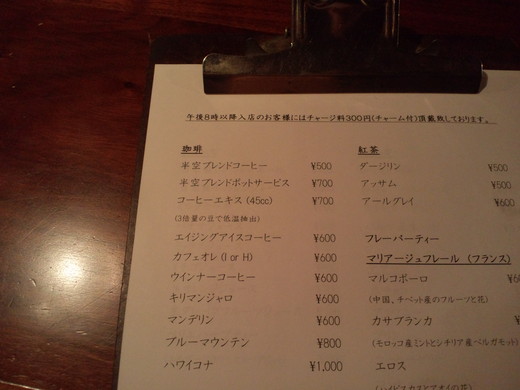 午後8時以降入店のお客様にはチャージ料300円(チャーム付)頂戴致しております。
珈琲
半空ブレンドコーヒー ¥500
半空ブレンドポットサービス ¥700
コーヒーエキス (45cc) ¥700
(3倍量の豆で低温抽出)
エイジングアイスコーヒー ¥600
カフェオレ (I or H) ¥600
ウインナーコーヒー ¥600
キリマンジャロ ¥600
マンデリン ¥600
ブルーマウンテン ¥800
ハワイコナ ¥1,000
紅茶
ダージリン ¥500
アッサム ¥500
アールグレイ ¥60
フレーバーティー
マリアージュフレール (フランス)
マルコポーロ
(中国、チベット産のフルーツと花)
カサブランカ
(モロッコ産ミントとシチリア産ベルガモット)
エロス
(ハイビスカスとアオイの花)